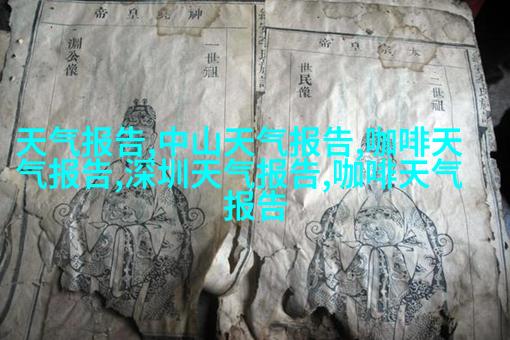 太宗皇帝
二世祖
世民像
神堯皇帝
一世祖
淵公像
天气报告,中山天气报告,咖啡天
气报告,深圳天气报告,咖啡天气
报告